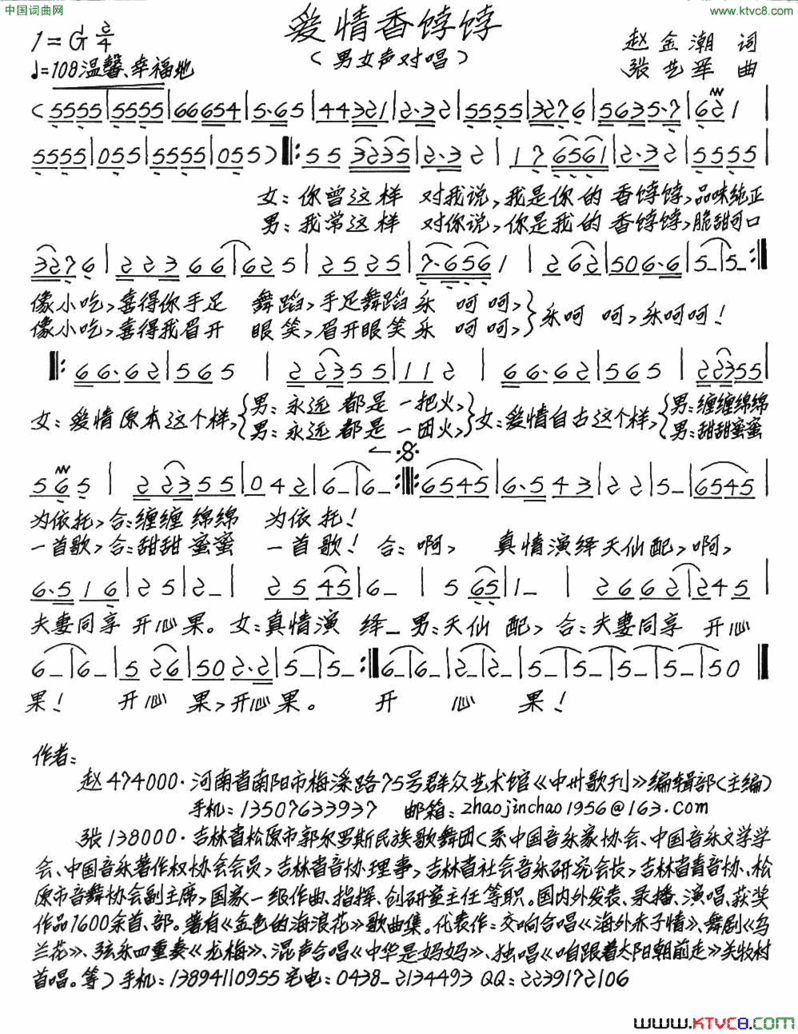 中国词曲网
www.ktvc8.com
爱情香饽饽
(男女声对唱)
1=G 2/4
♩=108 温馨、幸福地
赵金潮 词
张艺军 曲
(5555|5555|66654|5·65|44321|2·32|5555|3276|5635·7|621|
5555|055|5555|055):‖:55 3235|2·32|17 6561|2·32|5555|
女:你曾这样 对我说,我是你的 香饽饽,品味纯正
男:我常这样 对你说,你是我的 香饽饽,脆甜可口
3276|223 66|625|2525|7·6561|262|506·6|5_|5_:‖
像小吃,喜得你手足 舞蹈,手足舞蹈乐 呵呵,}乐呵 呵,乐呵呵!
像小吃,喜得我眉开 眼笑,眉开眼笑乐 呵呵,
‖:66·62|565|22355|112|66·62|565|22355|
女:爱情原本这个样,{男:永远 都是 一把火,}女:爱情自古这个样,{男:缠缠绵绵
男:永远 都是 一团火, 男:甜甜蜜蜜
565|22355|042|6_|6_:‖:6545|6·543|225|5_|6545|
为依托,合:缠缠 绵绵 为依托!
一首歌,合:甜甜 蜜蜜 一首歌! 合:啊, 真情演绎天仙配,啊,
6·516|25|2_|2545|6_|565|1_|2662|245|
夫妻同享 开心果。女:真情演 绎_ 男:天仙 配, 合:夫妻同享 开心
6_|6_|526|502·2|5_|5_:‖6_|6_|2_|2_|5_|5_|5_|5_|50‖
果! 开心 果,开心果。 开 心 果!
作者:
赵 474000·河南省南阳市梅溪路75号群众艺术馆《中州歌刊》编辑部(主编)
手机:13507633937 邮箱:zhaojinchao1956@163.com
张 138000·吉林省松原市郭尔罗斯民族歌舞团(系中国音乐家协会、中国音乐文学学
会、中国音乐著作权协会会员,吉林省音协理事,吉林省社会音乐研究会长,吉林省青音协、松
原市音舞协会副主席,国家一级作曲、指挥、创研室主任等职。国内外发表、录播、演唱、获奖
作品1600余首、部。著有《金色的海浪花》歌曲集。代表作:交响合唱《海外赤子情》、舞剧《乌
兰花》、弦乐四重奏《龙梅》、混声合唱《中华是妈妈》、独唱《咱跟着太阳朝前走》关牧村
首唱。等)手机:13894110955 宅电:0438-2134493 QQ:2239172106
www.KTVC8.com